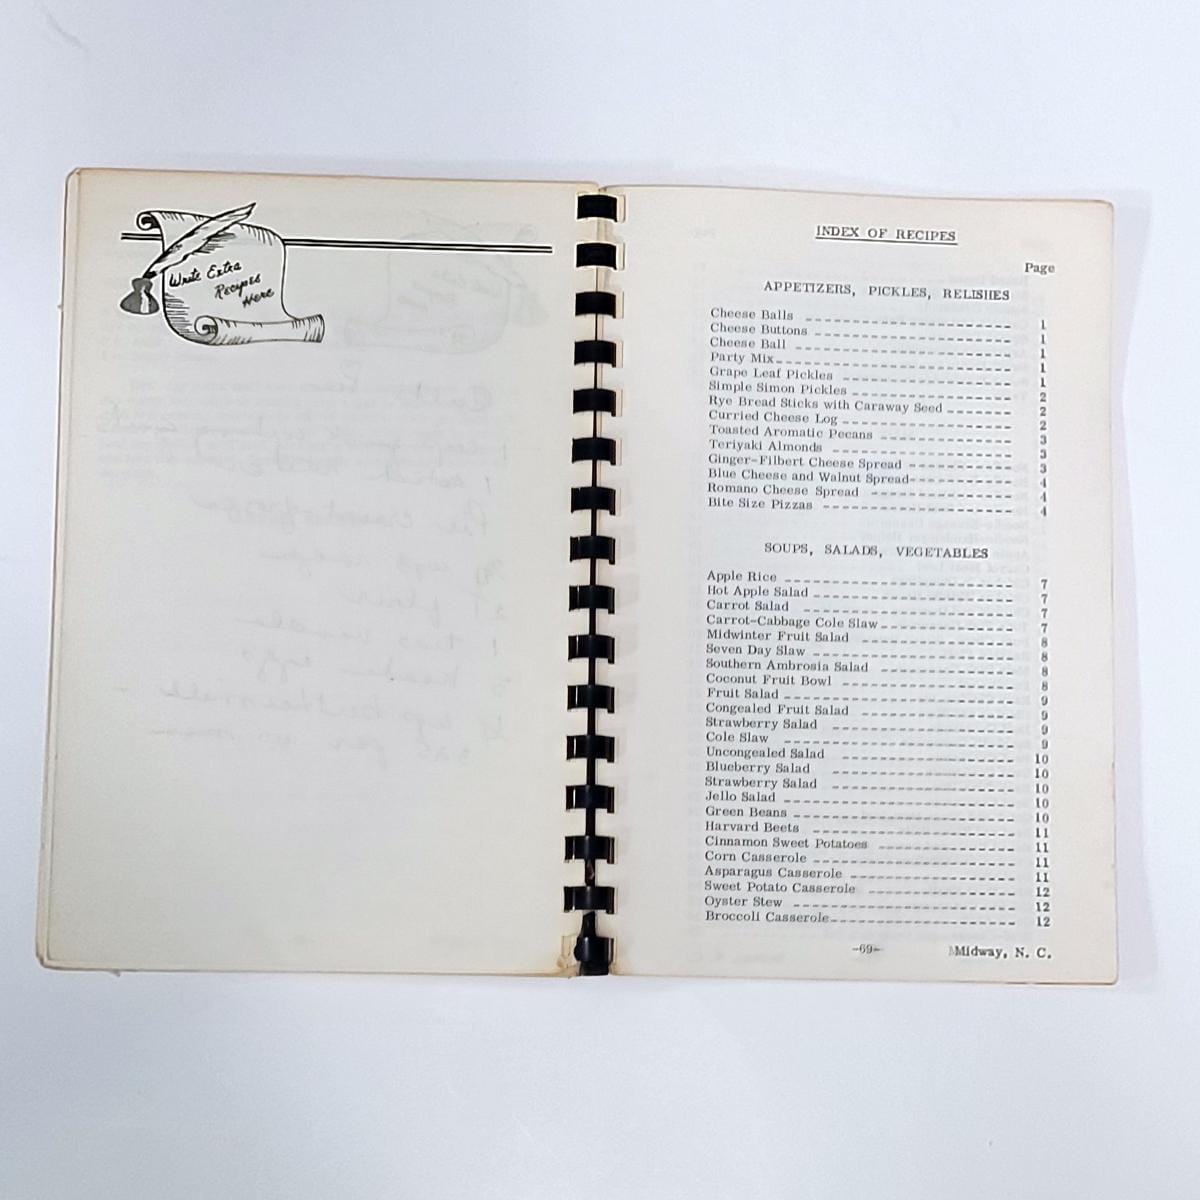 Write Extra
Recipes
Here
INDEX OF RECIPES
Page
APPETIZERS, PICKLES, RELISHES
Cheese Balls 1
Cheese Buttons 1
Cheese Ball 1
Party Mix 1
Grape Leaf Pickles 1
Simple Simon Pickles 2
Rye Bread Sticks with Caraway Seed 2
Curried Cheese Log 2
Toasted Aromatic Pecans 3
Teriyaki Almonds 3
Ginger-Filbert Cheese Spread 3
Blue Cheese and Walnut Spread 4
Romano Cheese Spread 4
Bite Size Pizzas 4
SOUPS, SALADS, VEGETABLES
Apple Rice 7
Hot Apple Salad 7
Carrot Salad 7
Carrot-Cabbage Cole Slaw 7
Midwinter Fruit Salad 8
Seven Day Slaw 8
Southern Ambrosia Salad 8
Coconut Fruit Bowl 8
Fruit Salad 9
Congealed Fruit Salad 9
Strawberry Salad 9
Cole Slaw 9
Uncongealed Salad 10
Blueberry Salad 10
Strawberry Salad 10
Jello Salad 10
Green Beans 10
Harvard Beets 11
Cinnamon Sweet Potatoes 11
Corn Casserole 11
Asparagus Casserole 11
Sweet Potato Casserole 12
Oyster Stew 12
Broccoli Casserole 12
-69- Midway, N. C.